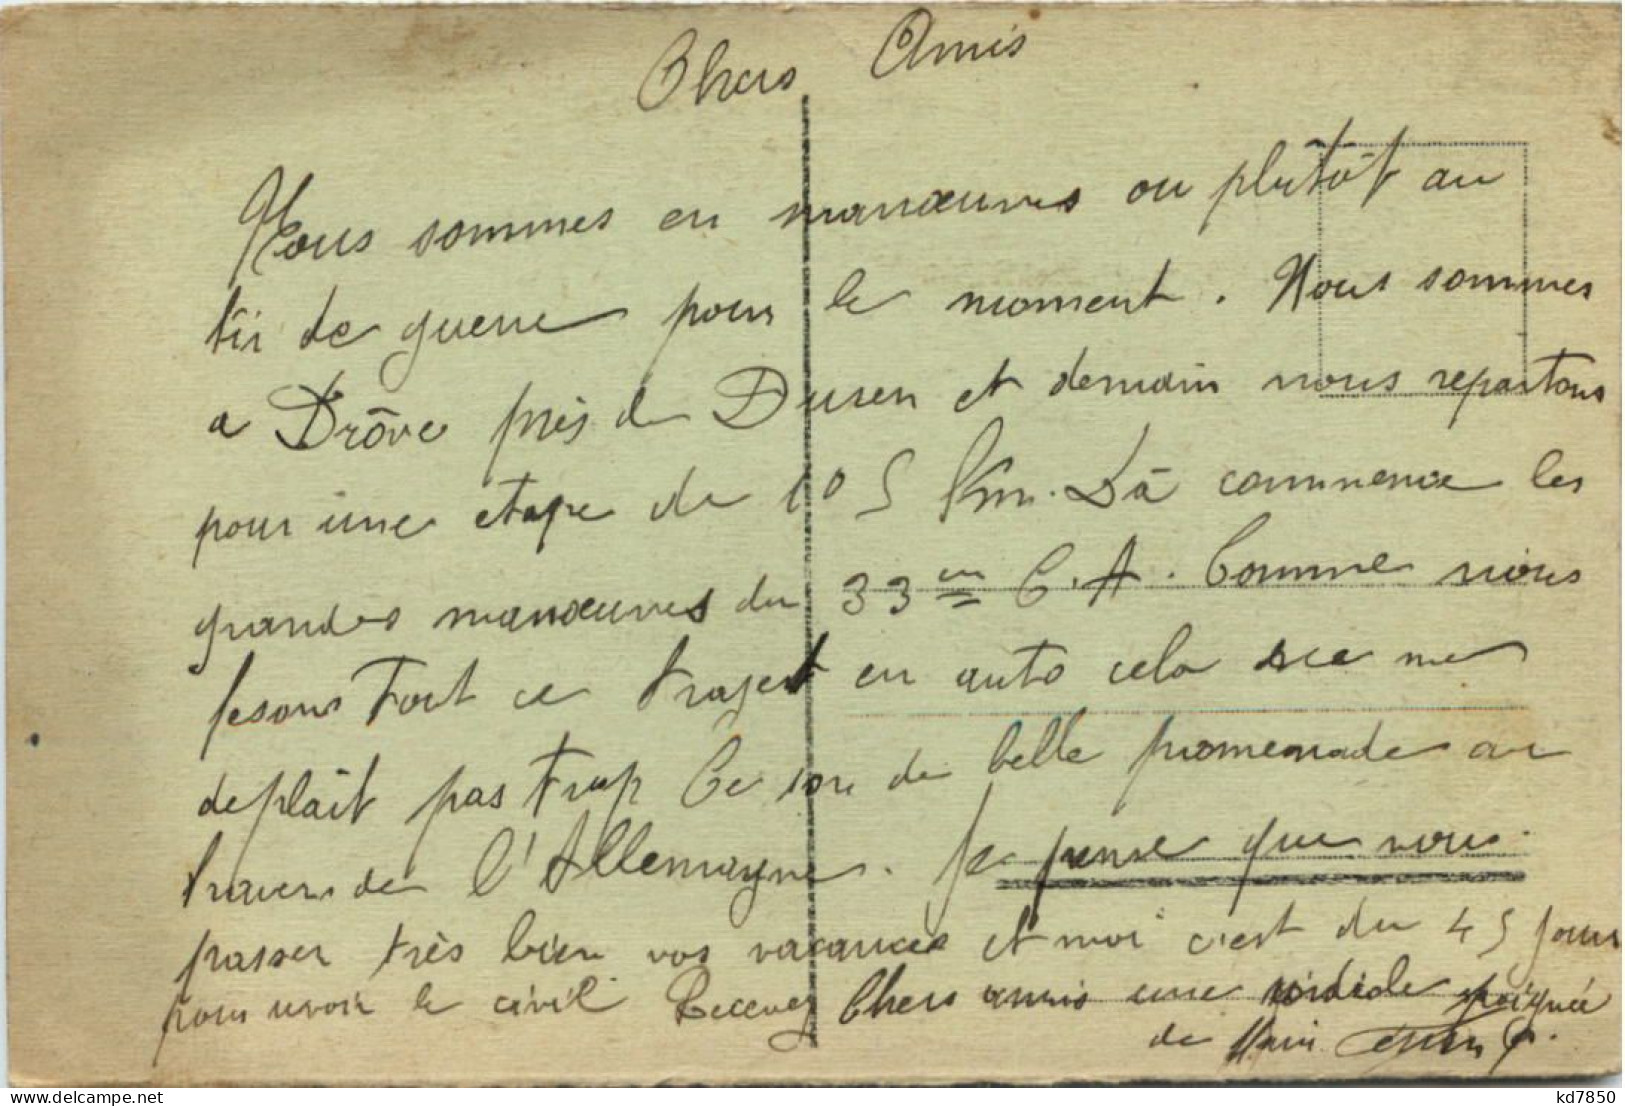 Chers Amis
Nous sommes en manœuvres ou plûtôt au
tir de guerre pour le moment. Nous sommes
a Drôve près de Duren et demain nous repartons
pour une etape de 105 Km. Là commence les
grandes manœuvres du 33em C.A. Comme nous
fesons tout ce trajet en auto cela ne me
deplait pas trop Ce de belle promenade au
travers de l'Allemagne. Je pense que vous
passer très bien vos vacances et moi c'est du 45 jours
pour revoir le civil Recevez Chers amis une cordiale poignée
de Main
kd7850